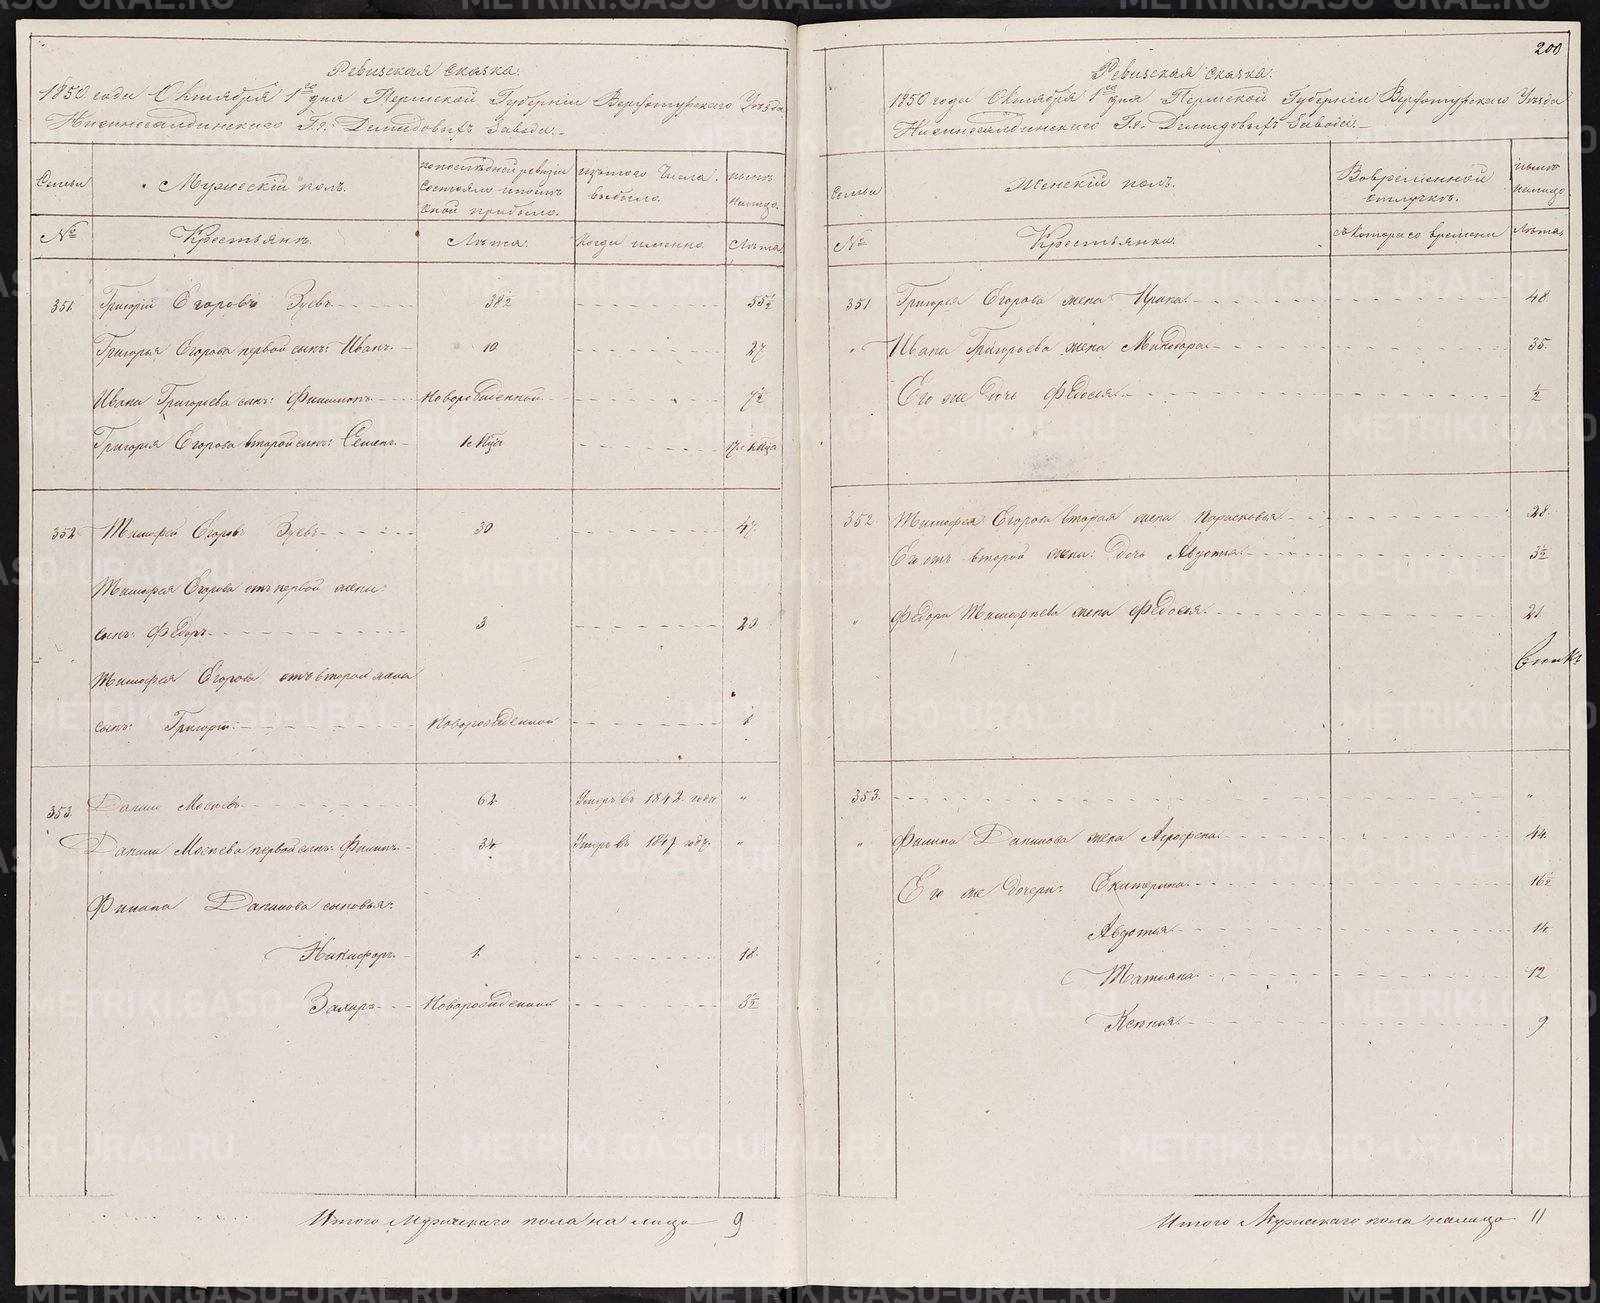 Ревизская сказка.
1850 года Октября 1го дня Пермской Губернiи Верхотурскаго Уѣзда
Нижнесалдинскаго Г.г. Демидовыхъ Завода.
Семьи
Мужескiй полъ.
по последней ревизiи состояло и после оной прибыло.
изъ того числа выбыло.
ныне на лицо.
№
Крестьяне.
Лѣта.
Когда именно.
Лѣта.
351. Григорiй Егоровъ Зуевъ 38½ 55½
Григорья Егорова первой сынъ: Иванъ. 10 27
Ивана Григорьева сынъ: Филимонъ новорожденной 7½
Григорья Егорова второй сынъ: Семенъ.
352. Тимофей Егоровъ Зуевъ 30 47
Тимофея Егорова отъ первой жены:
сынъ: Федоръ 3 20
Тимофея Егорова отъ второй жены
сынъ: Григорiй новорожденной 1
353. Данило Мосеевъ 62 Умеръ въ 1842 году "
Данила Мосеева первой сынъ: Филипъ. 34 Умеръ въ 1849 году. "
Филипа Данилова сыновья:
Никифоръ. 1. 18.
Захаръ новорожденной 3½
Итого Мужескаго пола на лицо 9
200
Ревизская сказка.
1850 года Октября 1го дня Пермской Губернiи Верхотурскаго Уѣзда
Нижнесалдинскаго Г.г. Демидовыхъ Завода.
Семьи
Женскiй полъ.
Во временной отлучкѣ.
ныне на лицо
№
Крестьянки.
съ котораго времени
Лѣта.
351. Григорья Егорова жена Ирина. 48.
" Ивана Григорьева жена Минодора 35.
Его же дочь Федосья. ½
352. Тимофея Егорова вторая жена Парасковья. 28.
Его отъ второй жены: дочь Авдотья. 3½
" Федора Тимофеева жена Федосья. 21.
353. "
" Филипа Данилова жена Агрофена. 44.
Его же дочери: Екатерина. 16½
Авдотья. 14.
Татьяна. 12
Ксенья. 9
Итого Мужескаго пола налицо 11
METRIKI.GASO-URAL.RU